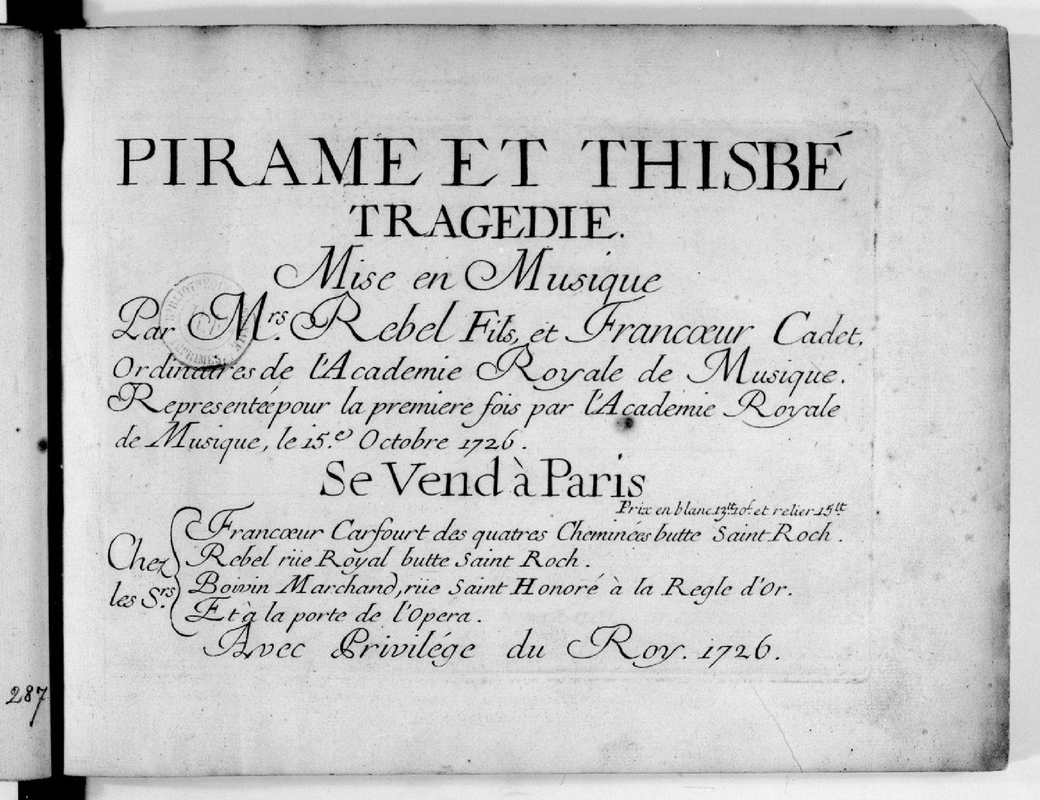 PIRAME ET THISBÉ
TRAGEDIE.
Mise en Musique
Par Mrs. Rebel Fils, et Francœur Cadet.
Ordinaires de l'Academie Royale de Musique.
Representée pour la premiere fois par l'Academie Royale
de Musique, le 15.e Octobre 1726.
Se Vend à Paris
Prix en blanc 13tt 10s et relier 15tt
Chez les Srs.
Francœur Carfourt des quatres Cheminées butte Saint Roch.
Rebel rüe Royal butte Saint Roch.
Boivin Marchand, rüe Saint Honoré à la Regle d'Or.
Et à la porte de l'Opera.
Avec Privilége du Roy. 1726.
287